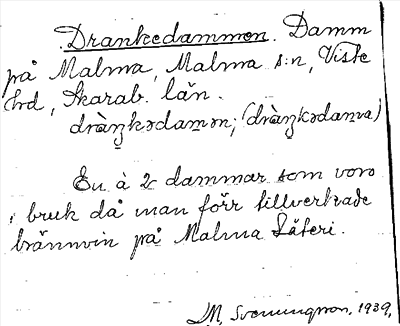 Drankedammen. Damm
på Malma, Malma s:n, Viste
hd, Skarab. län.
dràŋkədamən; (dràŋkədama)
En à 2 dammar som voro
i bruk då man förr tillverkade
brännvin på Malma Säteri.
M. Svenungsson, 1939.